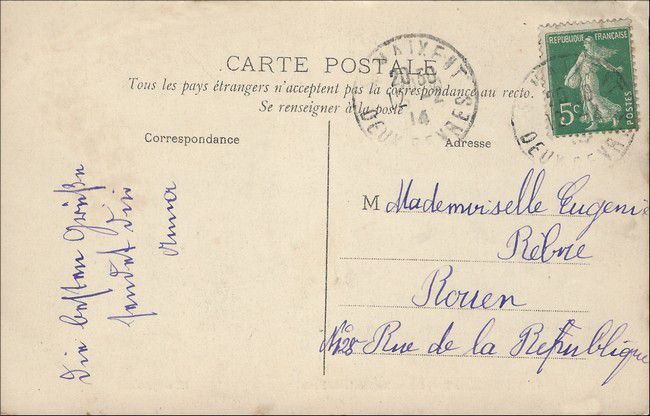 CARTE POSTALE
Tous les pays étrangers n'acceptent pas la correspondance au recto.
Se renseigner à la poste
Correspondance
Adresse
Die besten Grüße
sendet Dir
Anna
M Mademoiselle Eugenie
Rebvie
Rouen
No 28 Rue de la Republique
REPUBLIQUE FRANÇAISE
5c
POSTES
MAIXENT
20 30
14
DEUX SEVRES
DEUX SEVRES